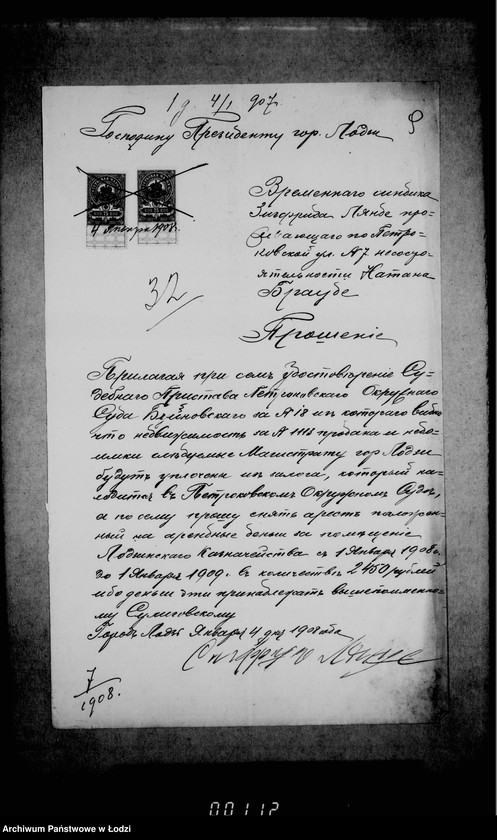 1 д 4/1 907.
9
Господину Президенту гор. Лодзи
Временнаго синдика
Зигфрида Лянде про-
живающаго по Петро-
ковской ул. № 7 несосто-
ятельности Натана
Браубе
4 Января 1908.
32
Прошеніе
Прилагая при семъ Удостовѣреніе Су-
дебнаго Пристава Петроковскаго Окружнаго
Суда за № 18 изъ котораго видно
что недвижимость за № продана и недо-
имки слѣдуемые Магистрату гор Лодзи
будутъ уплочены изъ залога, который на-
ходится въ Петроковскомъ Окружномъ Судѣ,
а по сему прошу снять арестъ наложен-
ный на арендныя деньги за помѣщеніе
Лодзинскаго Казначейства съ 1 Января 1908 г.
до 1 Января 1909. въ количествѣ 2450 рублей
ибо деньги эти принадлежатъ вышепоименно-
му
Городъ Лодзь Января 4 дня 1908 года
Зигфридъ Лянде
7/1908.
00112
Archiwum Państwowe w Łodzi